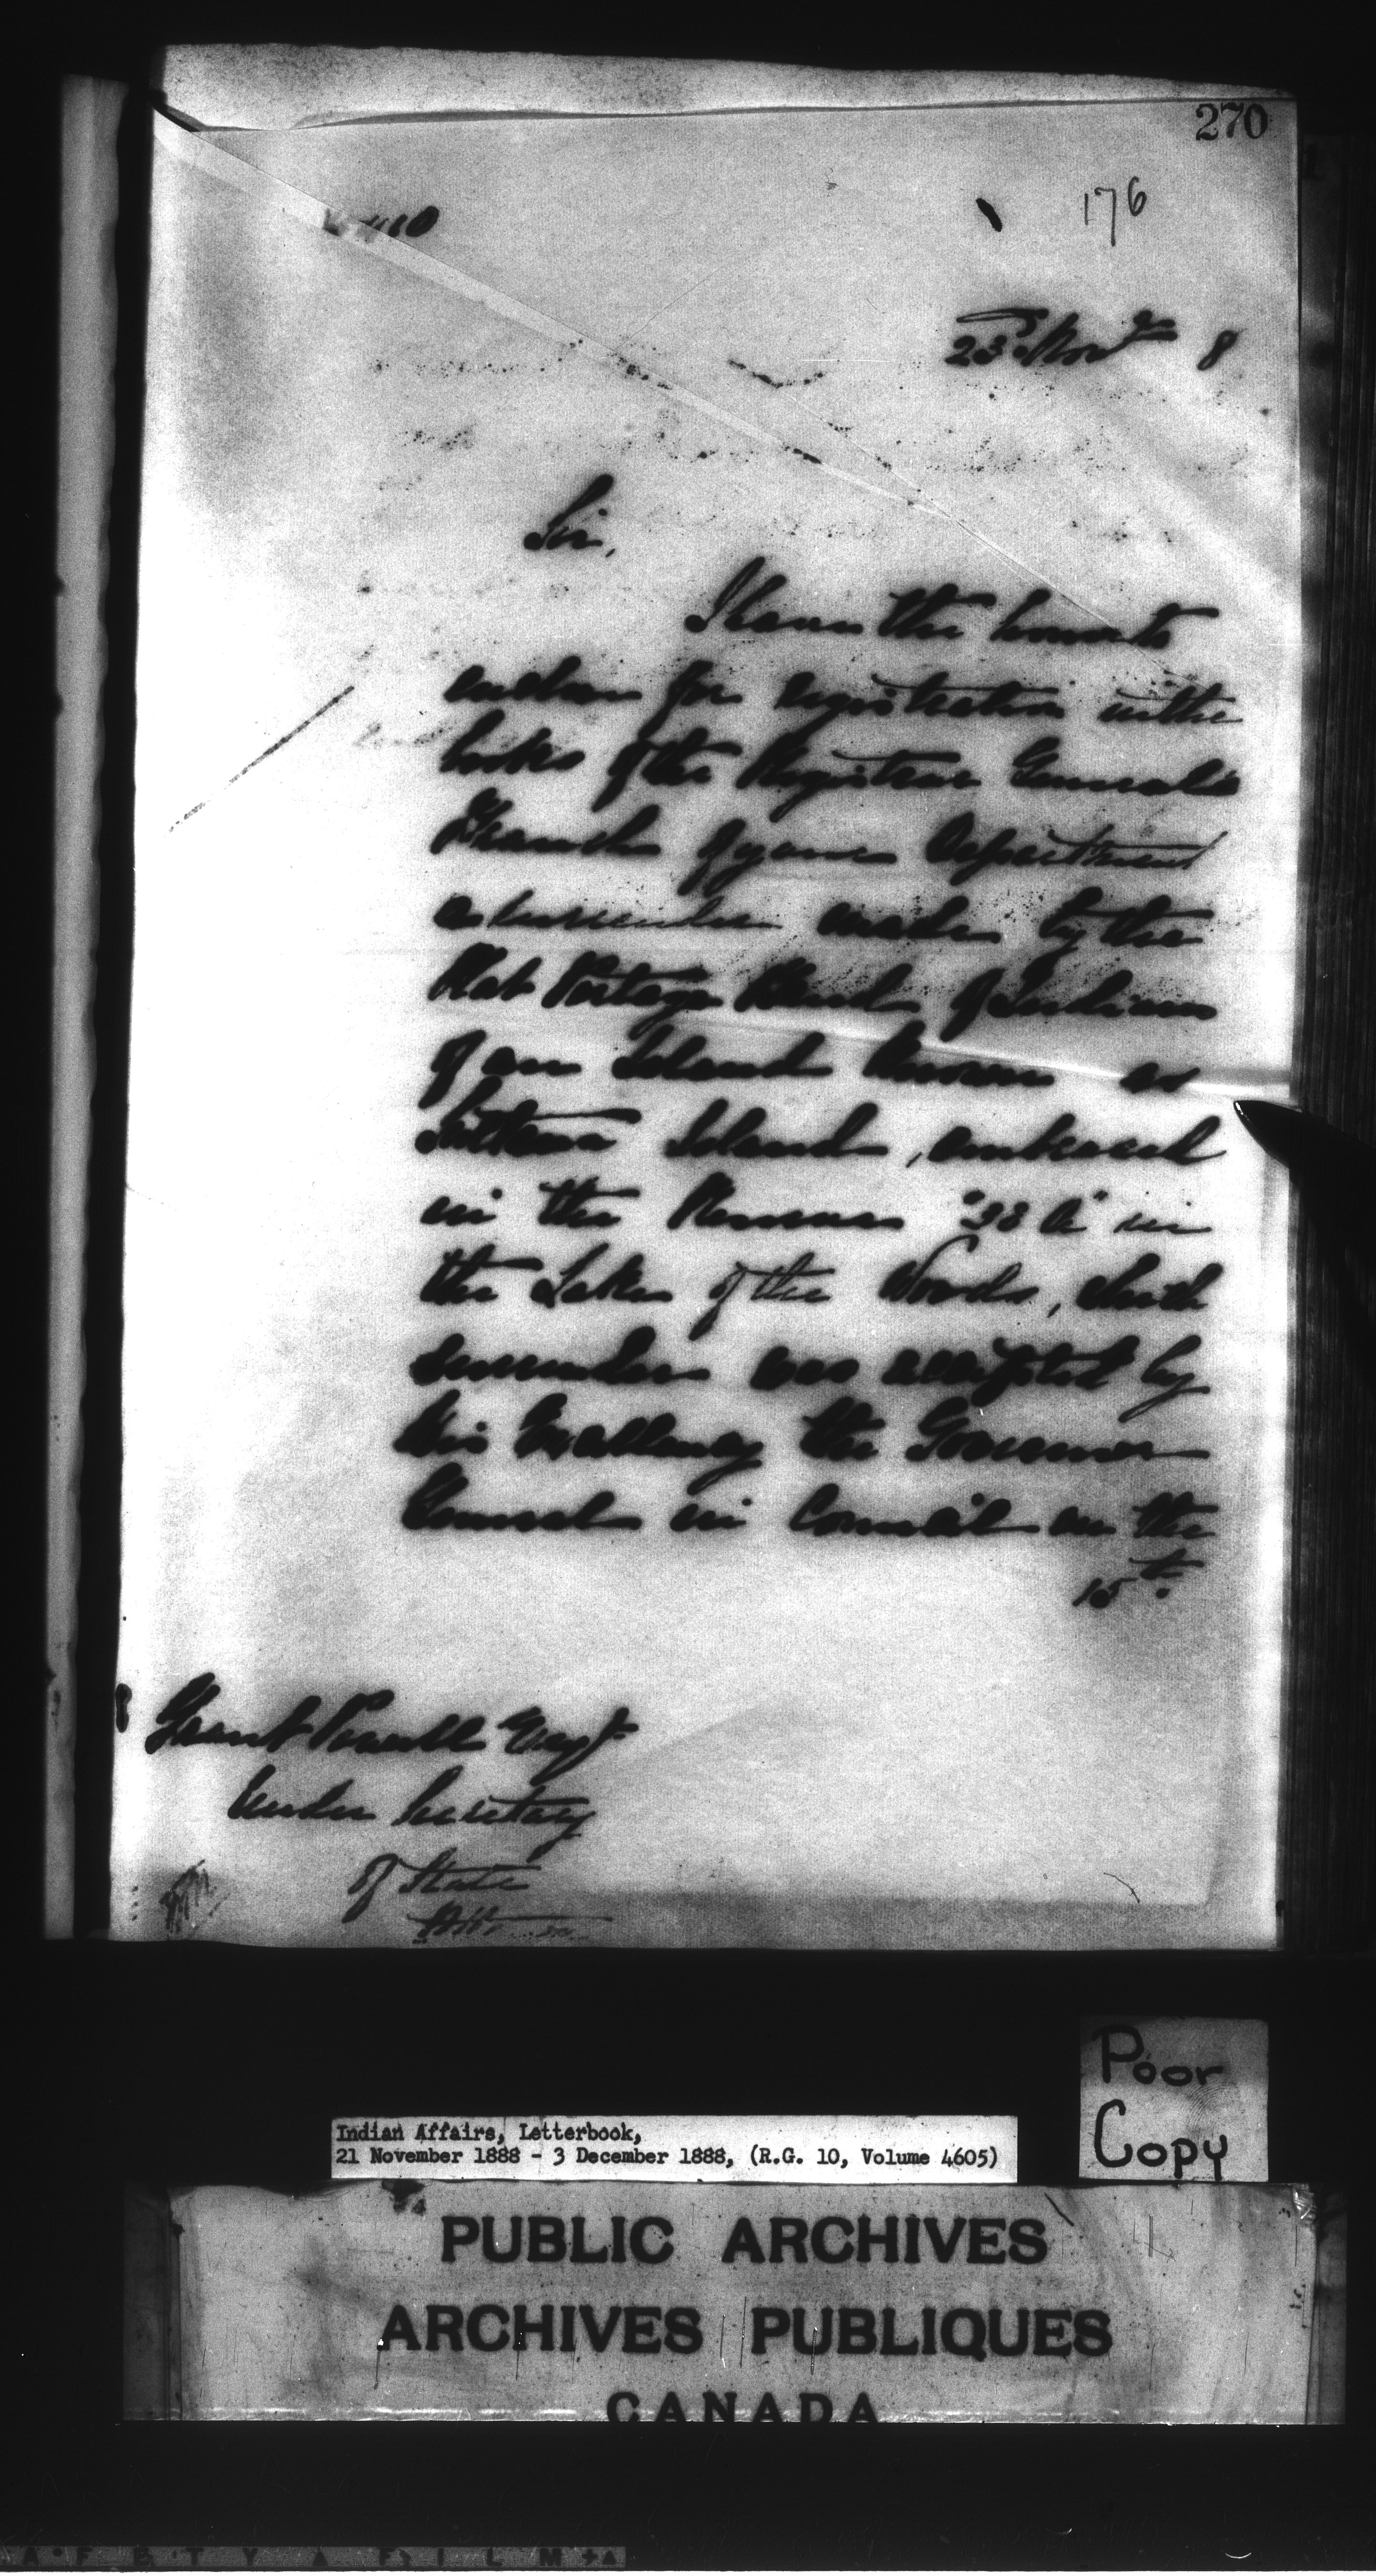 270
176
23rd Novr 8
Sir,
I have the honor to
enclose for registration in the
books of the Registrar General's
Branch of your Department
a surrender made by the
Rat Portage Band of Indians
of an Island known as
Island, embraced
in the Reserve "38 A" in
the Lake of the Woods, which
surrender was accepted by
His Excellency the Governor
General in Council on the
15th.
Grant Powell Esqr
Under Secretary
of State
Poor
Copy
Indian Affairs, Letterbook,
21 November 1888 - 3 December 1888, (R.G. 10, Volume 4605)
PUBLIC ARCHIVES
ARCHIVES PUBLIQUES
CANADA